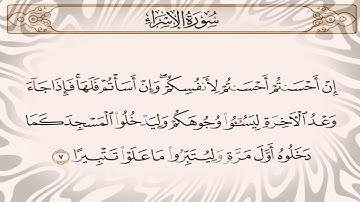 سُورَةُ الْإِسْرَاءِ
إِنْ أَحْسَنتُمْ أَحْسَنتُمْ لِأَنفُسِكُمْ ۖ وَإِنْ أَسَأْتُمْ فَلَهَا ۚ فَإِذَا جَاءَ
وَعْدُ الْآخِرَةِ لِيَسُـُٔوا۟ وُجُوهَكُمْ وَلِيَدْخُلُوا۟ الْمَسْجِدَ كَمَا
دَخَلُوهُ أَوَّلَ مَرَّةٍ وَلِيُتَبِّرُوا۟ مَا عَلَوْا۟ تَتْبِيرًا ٧